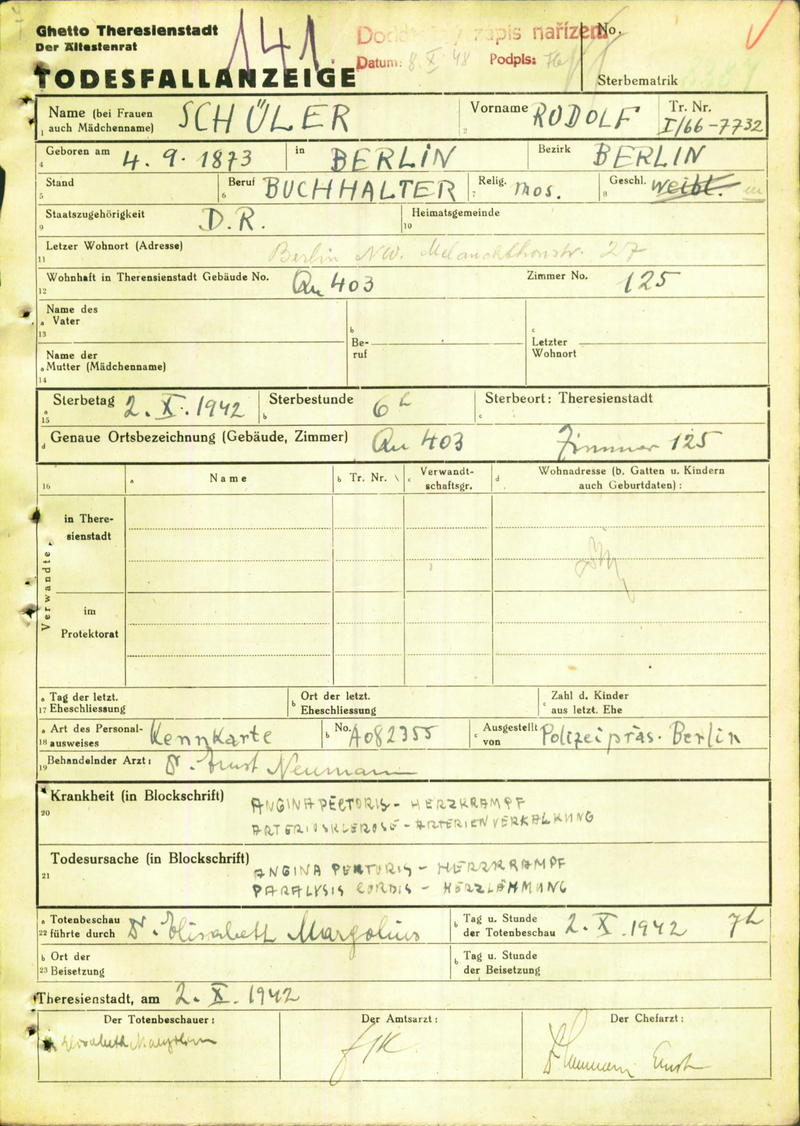 Ghetto Theresienstadt
Der Ältestenrat
141
TODESFALLANZEIGE
zápis nařízen
Datum: 8 X 48 Podpis:
No.
Sterbematrik
Name (bei Frauen auch Mädchenname) SCHÜLER
1
Vorname RUDOLF
2
Tr. Nr. I/66-7732
Geboren am 4. 9. 1873 in BERLIN Bezirk BERLIN
4
Stand Beruf BUCHHALTER Relig. mos. Geschl. weibl. m
5 6 7 8
Staatszugehörigkeit D. R. Heimatsgemeinde
9 10
Letzer Wohnort (Adresse) Berlin NW. Melanchthonstr. 27
11
Wohnhaft in Theresienstadt Gebäude No. Qu 403 Zimmer No. 125
12
Name des
a Vater
13
Name der
a Mutter (Mädchenname)
14
b
Be-
ruf
c
Letzter
Wohnort
Sterbetag 2. X. 1942 Sterbestunde 6 h Sterbeort: Theresienstadt
a 15 b c
d Genaue Ortsbezeichnung (Gebäude, Zimmer) Qu 403 Zimmer 125
16 a Name b Tr. Nr. c Verwandt-
schaftsgr. d Wohnadresse (b. Gatten u. Kindern
auch Geburtdaten) :
Verwandte
in There-
sienstadt
im
Protektorat
a Tag der letzt.
17 Eheschliessung
b Ort der letzt.
Eheschliessung
c Zahl d. Kinder
aus letzt. Ehe
a Art des Personal-
18 ausweises Kennkarte b No. A082355 c Ausgestellt
von Polizeipräs. Berlin
Behandelnder Arzt: Dr. Ernst Neumann
19
Krankheit (in Blockschrift) ANGINA PECTORIS - HERZKRAMPF
20 ARTERIOSKLEROSE - ARTERIENVERKALKUNG
Todesursache (in Blockschrift) ANGINA PECTORIS - HERZKRAMPF
21 PARALYSIS CORDIS - HERZLÄHMUNG
a Totenbeschau
22 führte durch Dr. Elisabeth Margolius b Tag u. Stunde
der Totenbeschau 2. X. 1942 7h
b Ort der
23 Beisetzung
b Tag u. Stunde
der Beisetzung
Theresienstadt, am 2. X. 1942
Der Totenbeschauer: Der Amtsarzt: Der Chefarzt:
Dr Neumann Ernst